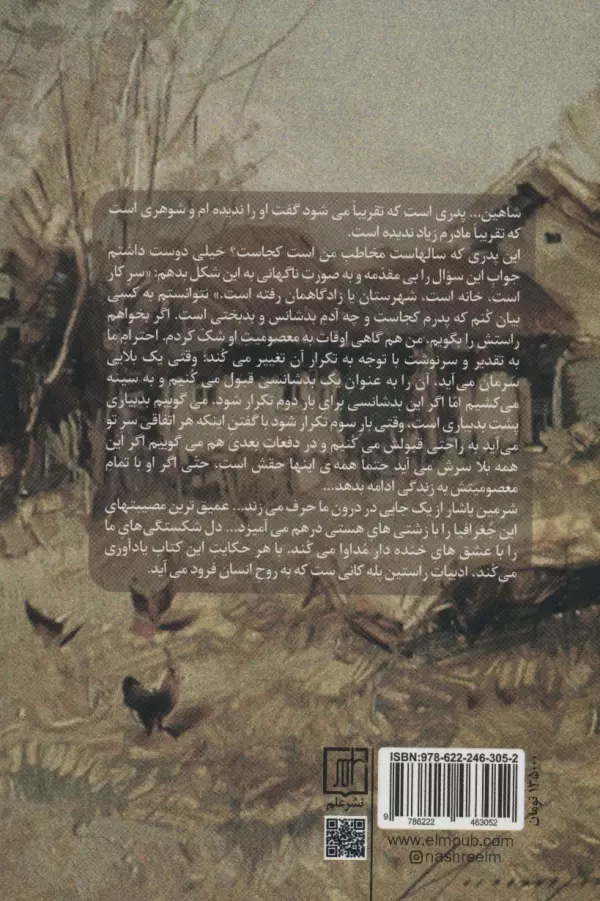 شاهین... پدری است که تقریباً می شود گفت او را ندیده ام و شوهری است
که تقریباً مادرم زیاد ندیده است.
این پدری که سالهاست مخاطب من است کجاست؟ خیلی دوست داشتم
جواب این سؤال را بی مقدمه و به صورت ناگهانی به این شکل بدهم: «سر کار
است، خانه است، شهرستان یا زادگاهمان رفته است.» نتوانستم به کسی
بیان کُنم که پدرم کجاست و چه آدم بدشانس و بدبختی است. اگر بخواهم
راستش را بگویم، من هم گاهی اوقات به معصومیت او شک کردم. احترام ما
به تقدیر و سرنوشت با توجه به تکرار آن تغییر می کُند؛ وقتی یک بلایی
سرمان می آید، آن را به عنوان یک بدشانسی قبول می کُنیم و به سینه
می‌کشیم امّا اگر این بدشانسی برای بار دوم تکرار شود، می گوییم بدبیاری
پشت بدبیاری است، وقتی بار سوم تکرار شود با گفتن اینکه هر اتفاقی سر تو
می‌آید به راحتی قبولش می کُنیم و در دفعات بعدی هم می گوییم اگر این
همه بلا سرش می آید حتماً همه‌ی اینها حقش است، حتّی اگر او با تمام
معصومیتش به زندگی ادامه بدهد...
شرمین یاشار از یک جایی در درون ما حرف می زند... عمیق ترین مصیبتهای
این جُغرافیا را با زشتی های هستی درهم می آمیزد... دل شکستگی‌های ما
را با عشق های خنده دار مُداوا می کُند. با هر حکایت این کتاب یادآوری
می‌کُند، ادبیات راستین پله کانی ست که به روح انسان فرود می آید.
ISBN:978-622-246-305-2
9 786222 463052
۱۳۵۰۰۰ تومان
نشر علم
www.elmoub.com
nashreelm